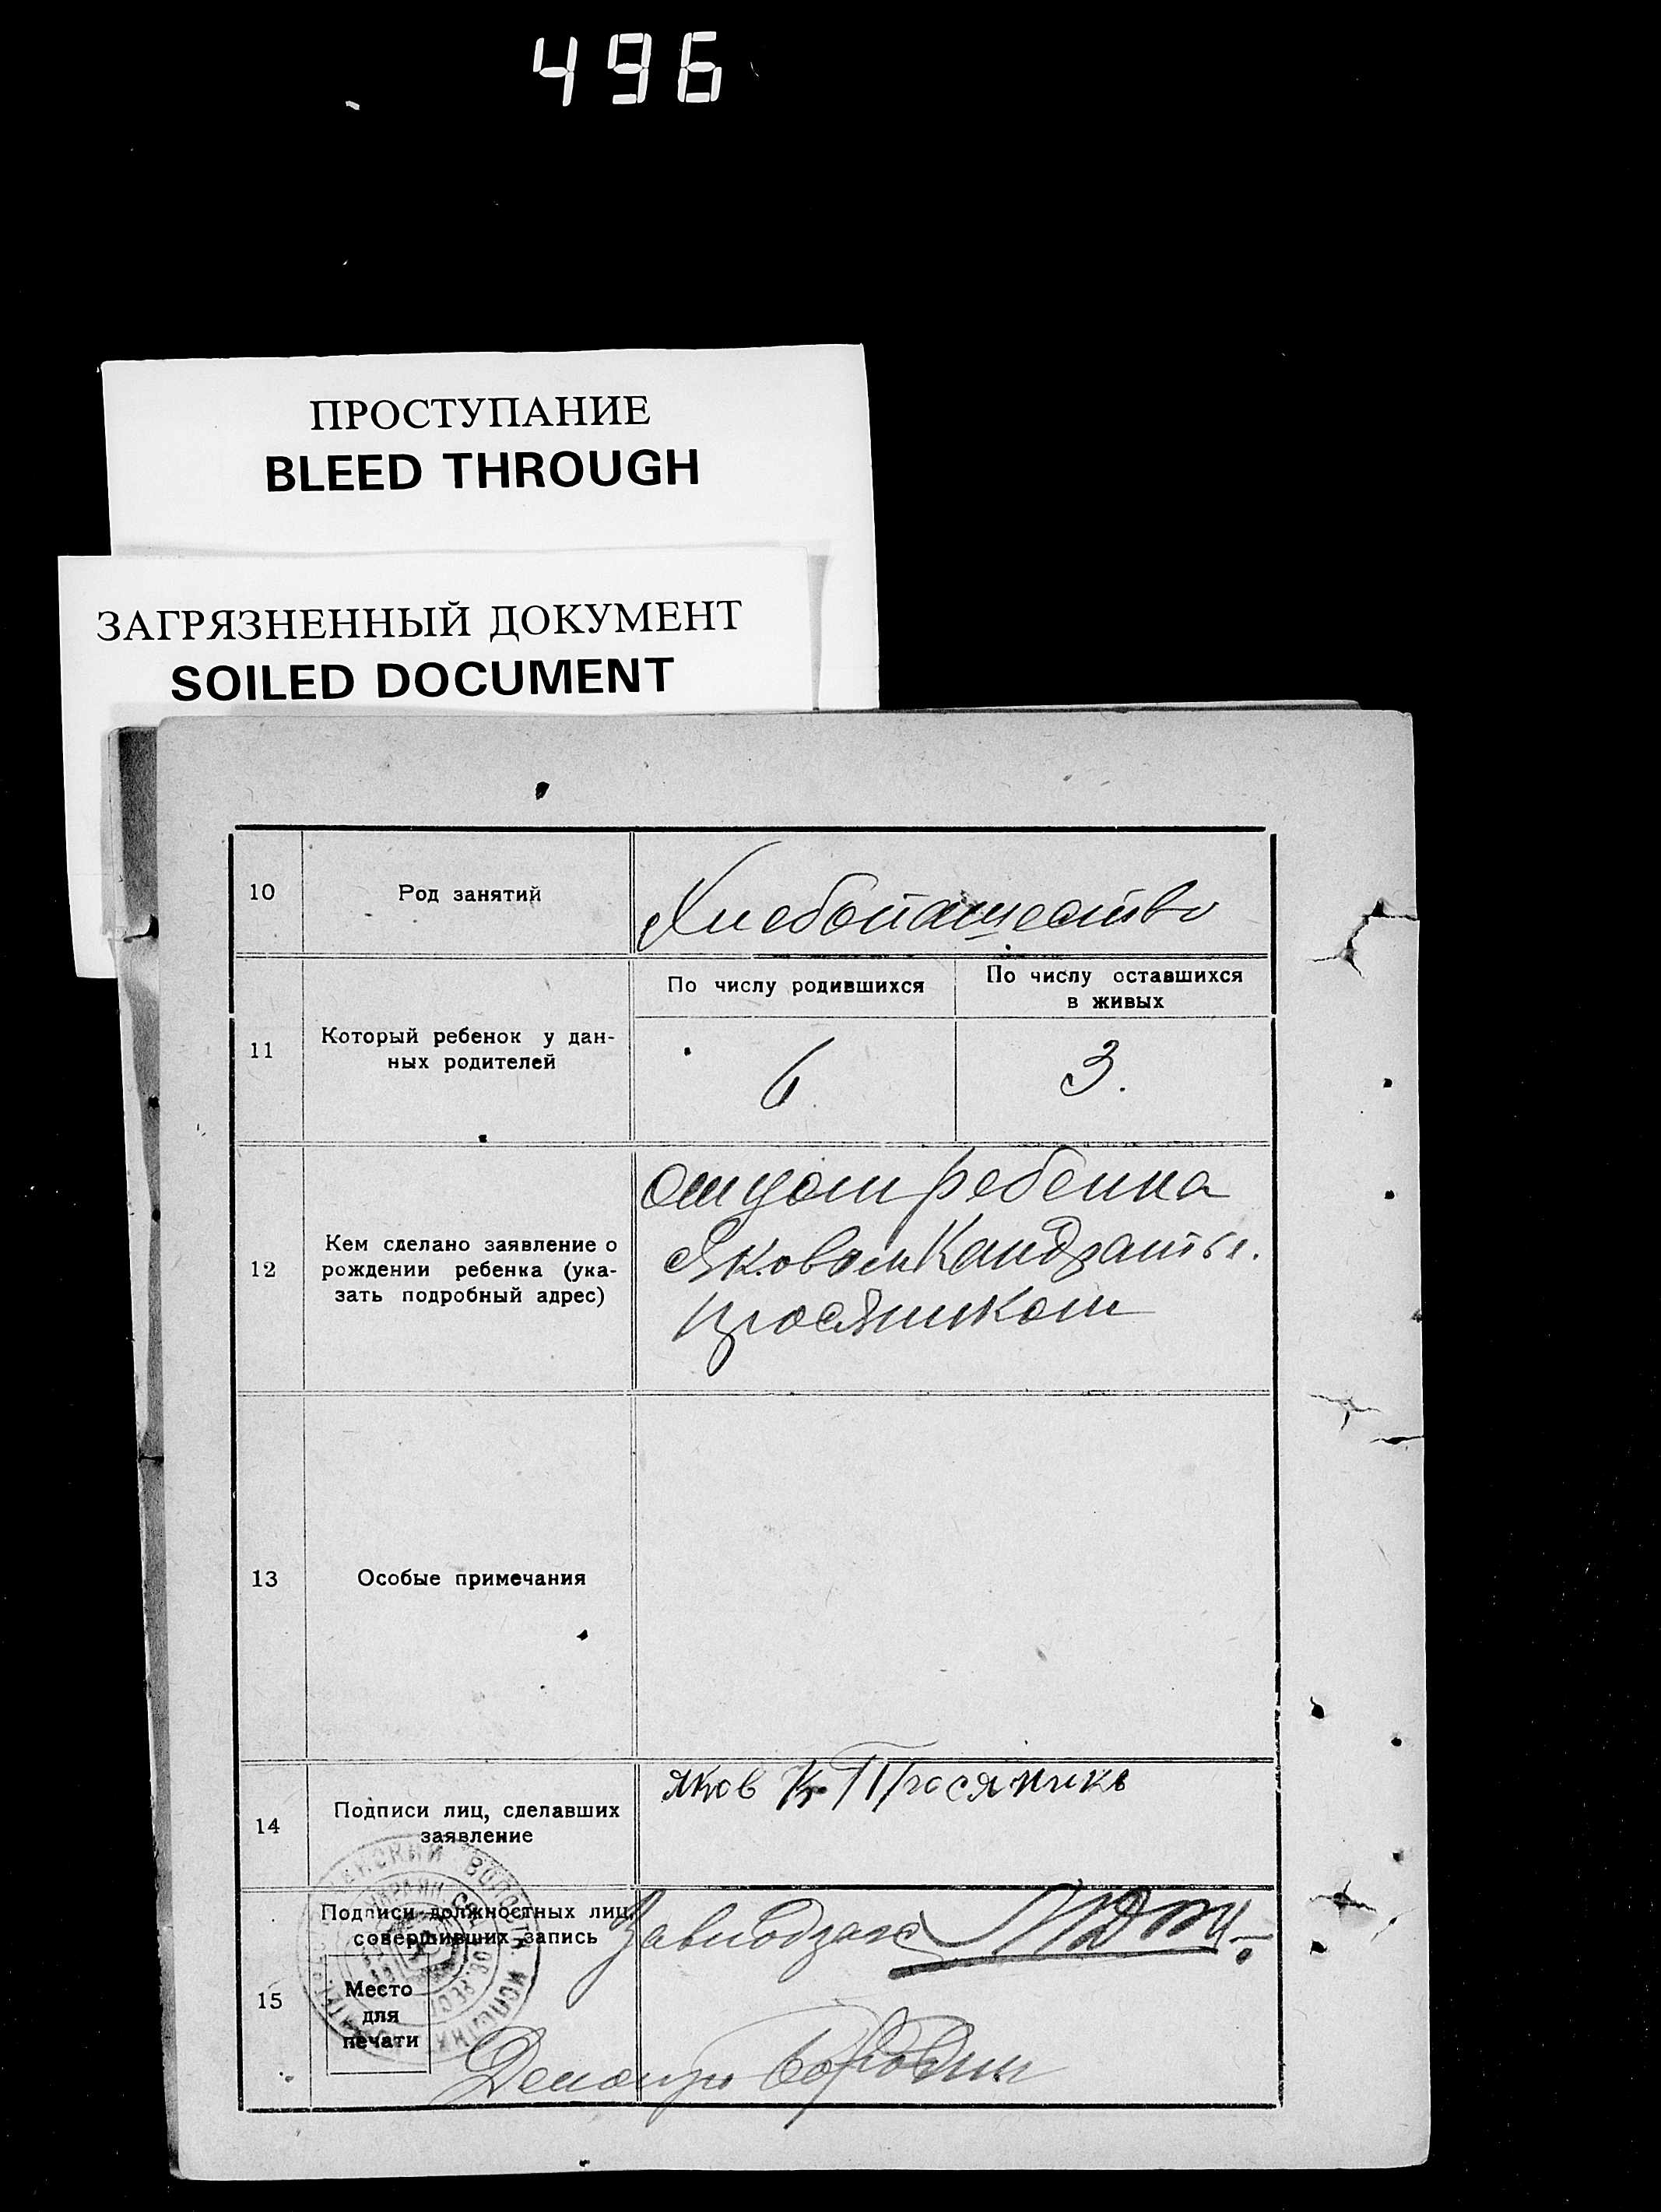 496
ПРОСТУПАНИЕ
BLEED THROUGH
ЗАГРЯЗНЕННЫЙ ДОКУМЕНТ
SOILED DOCUMENT
10
Род занятий
Хлебопашество
11
Который ребенок у дан-
ных родителей
По числу родившихся
По числу оставшихся
в живых
6
3.
12
Кем сделано заявление о
рождении ребенка (ука-
зать подробный адрес)
Отцом ребенка
Яковом Кандратьев.
Просяником
13
Особые примечания
14
Подписи лиц, сделавших
заявление
Яков К Просяникъ
15
Подписи должностных лиц,
совершивших запись
Место
для
печати
Завподзагс
Делопр Бородин